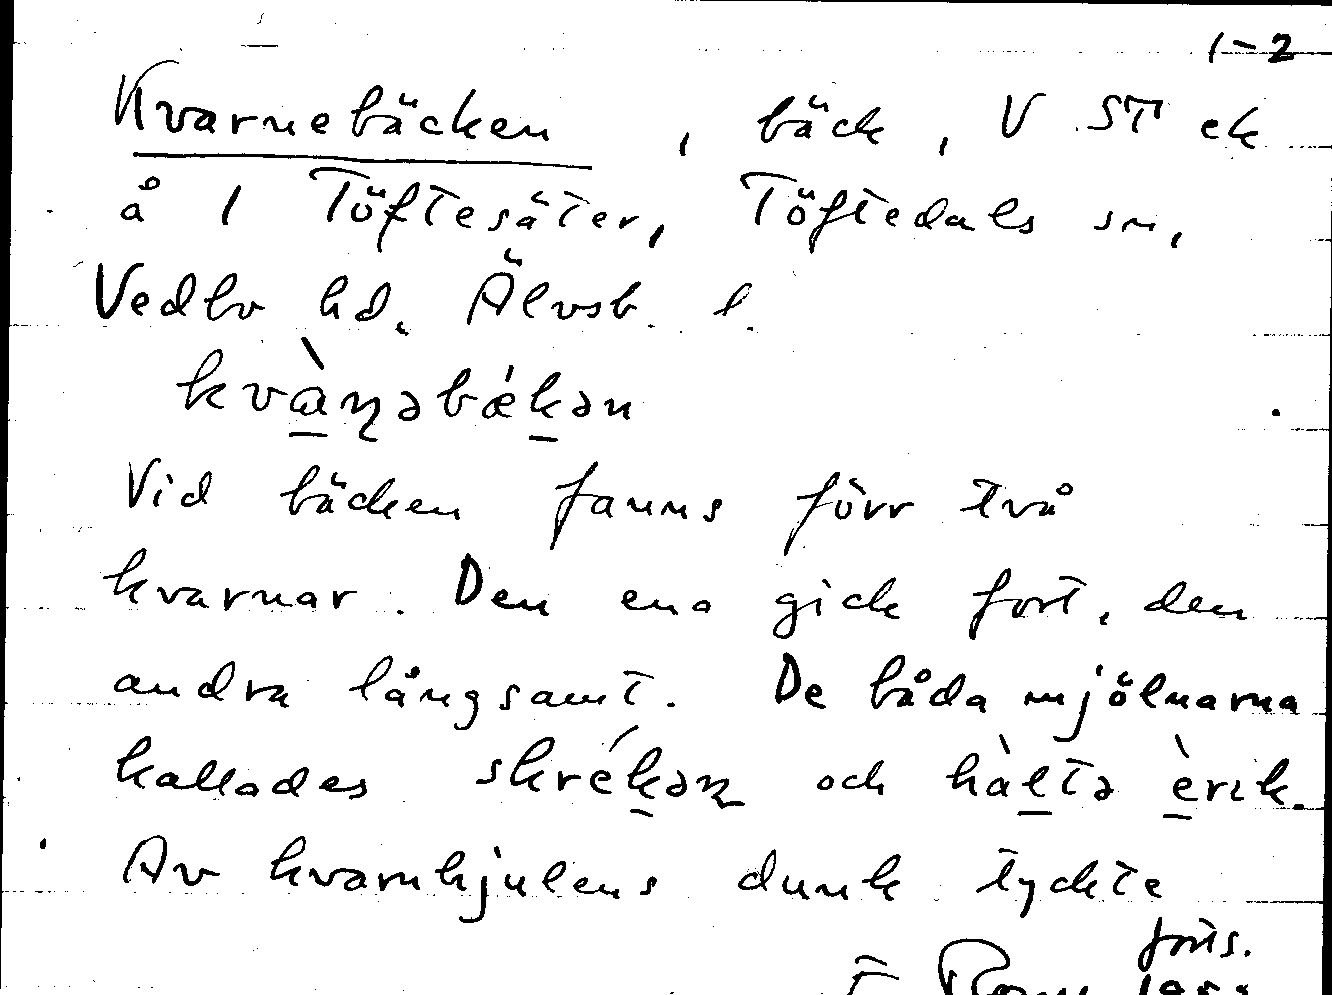 1-2
Kvarnebäcken, bäck, V ST ek
å 1 Töftesäter, Töftedals sn,
Vedbo hd, Älvsb. l.
kvàɳəbǽkən
Vid bäcken fanns förr två
kvarnar. Den ena gick fort, den
andra långsamt. De båda mjölnarna
kallades skrékəɳ och hàltə èrık.
Av kvarnhjulens dunk tyckte
forts.